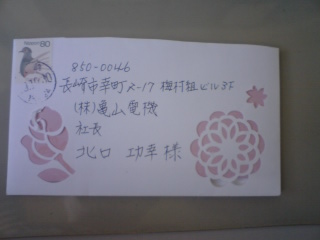 80
850-0046
長崎市幸町2-17 梅村組ビル3F
(株)亀山電機
社長
北口 功幸様